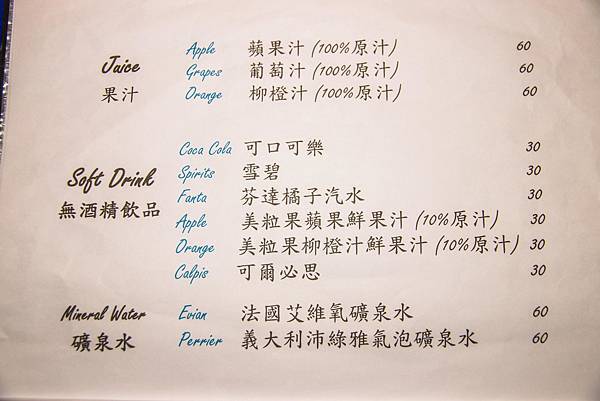 Juice
果汁
Apple 蘋果汁 (100%原汁) 60
Grapes 葡萄汁 (100%原汁) 60
Orange 柳橙汁 (100%原汁) 60
Soft Drink
無酒精飲品
Coca Cola 可口可樂 30
Spirits 雪碧 30
Fanta 芬達橘子汽水 30
Apple 美粒果蘋果鮮果汁 (10%原汁) 30
Orange 美粒果柳橙汁鮮果汁 (10%原汁) 30
Calpis 可爾必思 30
Mineral Water
礦泉水
Evian 法國艾維氧礦泉水 60
Perrier 義大利沛綠雅氣泡礦泉水 60